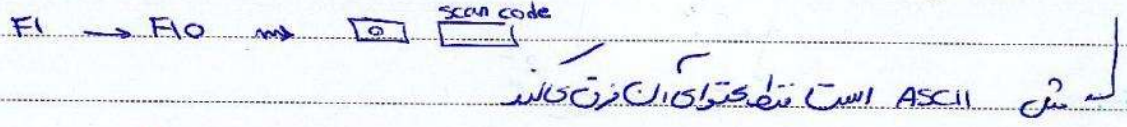 F1 → F10 ⇝ 0 scan code
مثل ASCII است فقط محتوای آن فرق می‌کند